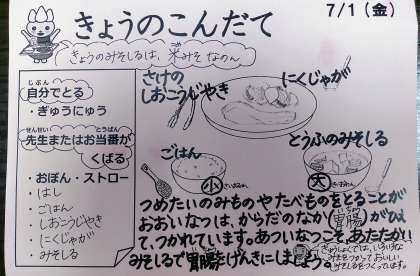 きょうのこんだて
7/1(金)
きょうのみそしるは、米みそ なのん
じぶん
自分でとる
・ぎゅうにゅう
せんせい とうばん
先生またはお当番が
くばる
・おぼん・ストロー
・はし
・ごはん
・しおこうじやき
・にくじゃが
・みそしる
さけの
しおこうじやき
にくじゃが
ごはん
小
とうふのみそしる
大
つめたいのみものやたべものをとることが
おおいなつは、からだのなか(胃腸)がひえ
て、つかれています。あついなつこそあたたかい
みそしるで胃腸をげんきにしましょう。